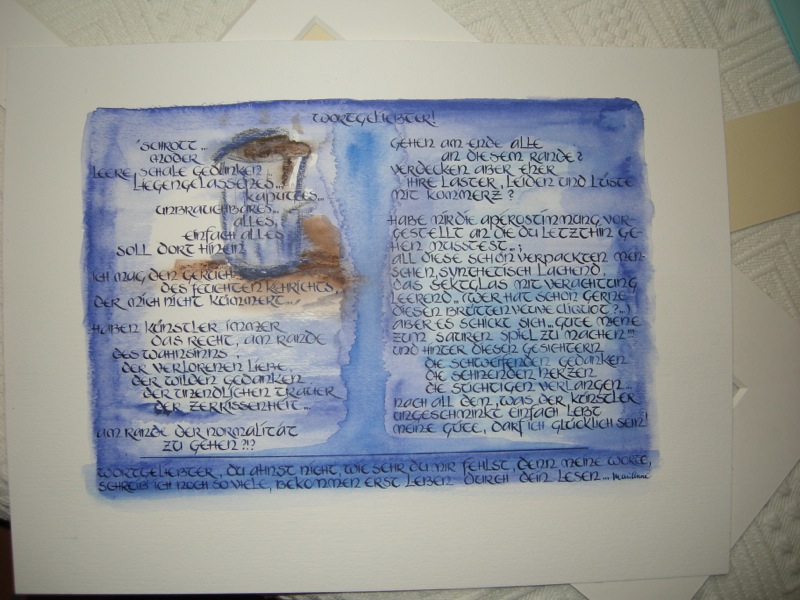 WORTGELIEBTER!
'SCHROTT...
MODER
LEERE SCHALE GEDANKEN
LIEGENGELASSENES...
KAPUTTES...
UNBRAUCHBARES...
ALLES,
EINFACH ALLES
SOLL DORT HINEIN
ICH MAG DEN GERUCH
DES FEUCHTEN KEHRICHTS,
DER MICH NICHT KÜMMERT...
HABEN KÜNSTLER IMMER
DAS RECHT, AM RANDE
DES WAHNSINNS,
DER VERLORENEN LIEBE,
DER WILDEN GEDANKEN
DER UNENDLICHEN TRAUER
DER ZERRISSENHEIT...
AM RANDE DER NORMALITÄT
ZU GEHEN?!?
GEHEN AM ENDE ALLE
AN DIESEM RANDE?
VERDECKEN ABER EHER
IHRE LASTER, LEIDEN UND LÜSTE
MIT KOMMERZ?
HABE MIR DIE APEROSTIMMUNG VOR-
GESTELLT AN DIE DU LETZTHIN GE-
HEN MUSSTEST..;
ALL DIESE SCHÖN VERPACKTEN MEN-
SCHEN, SYNTHETISCH LACHEND,
DAS SEKTGLAS MIT VERACHTUNG
LEEREND.. (WER HAT SCHON GERNE
DIESEN BRUT VEUVE CLIQUOT?...)
ABER ES SCHICKT SICH.. GUTE MIENE
ZUM SAUREN SPIEL ZU MACHEN!!!
UND HINTER DIESEN GESICHTERN
DIE SCHWEIFENDEN GEDANKEN
DIE SEHNENDEN HERZEN
DIE SÜCHTIGEN VERLANGEN...
NACH ALL DEM, WAS DER KÜNSTLER
UNGESCHMINKT EINFACH LEBT
MEINE GÜTE, DARF ICH GLÜCKLICH SEIN!
WORTGELIEBTER, DU AHNST NICHT, WIE SEHR DU MIR FEHLST, DENN MEINE WORTE,
SCHREIB ICH NOCH SO VIELE, BEKOMMEN ERST LEBEN DURCH DEIN LESEN...